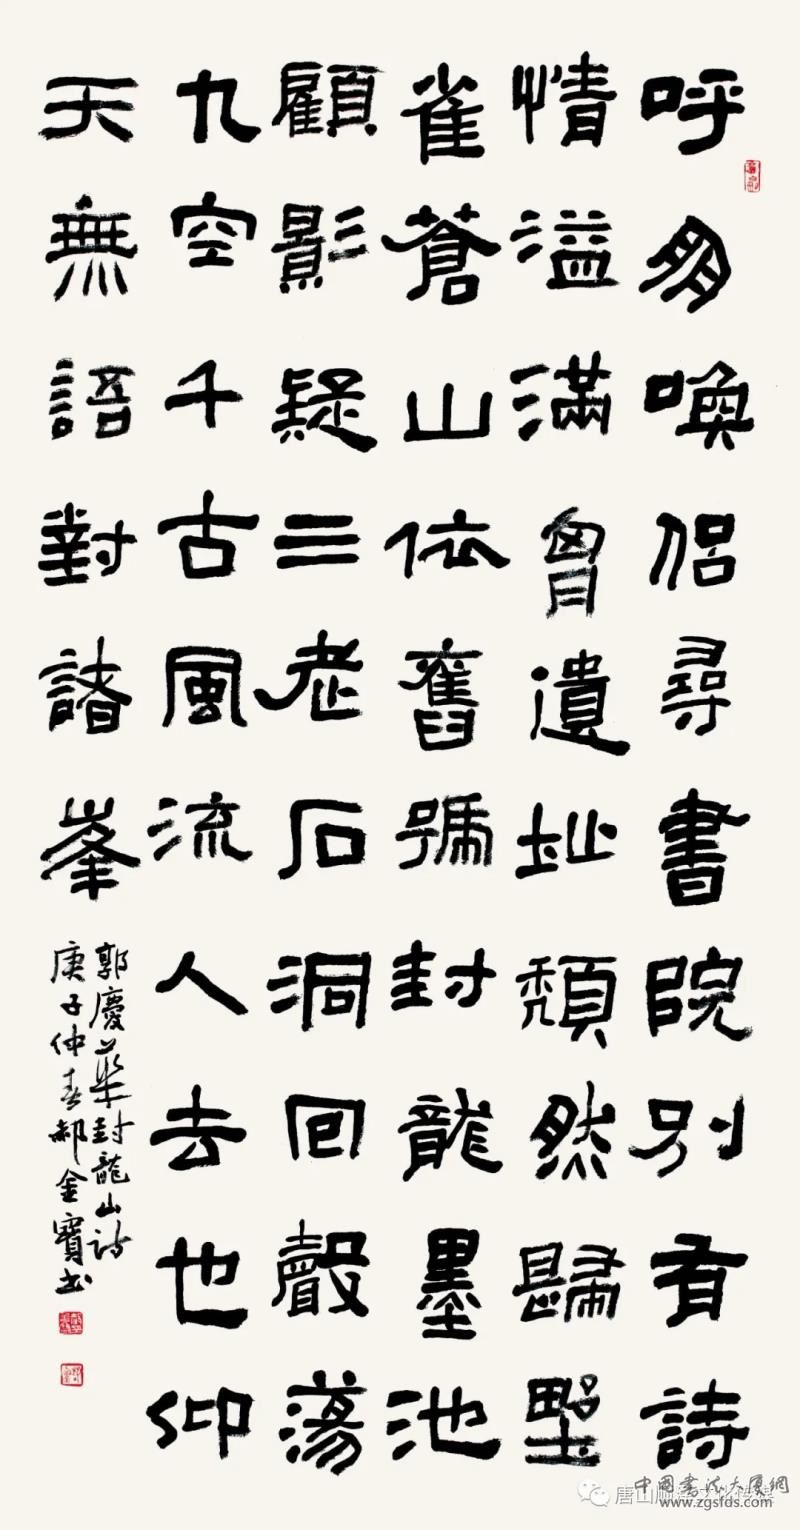 呼朋喚侶尋書院別有詩
情溢滿胷遺址頹然歸壄
雀蒼山依舊號封龍墨池
顧影疑三老石洞回聲蕩
九空千古風流人去也仰
天無語對諸峯
郭慶華封龍山詩
庚子仲春郝金寶书
中国书法大厦網
www.zgsfds.com